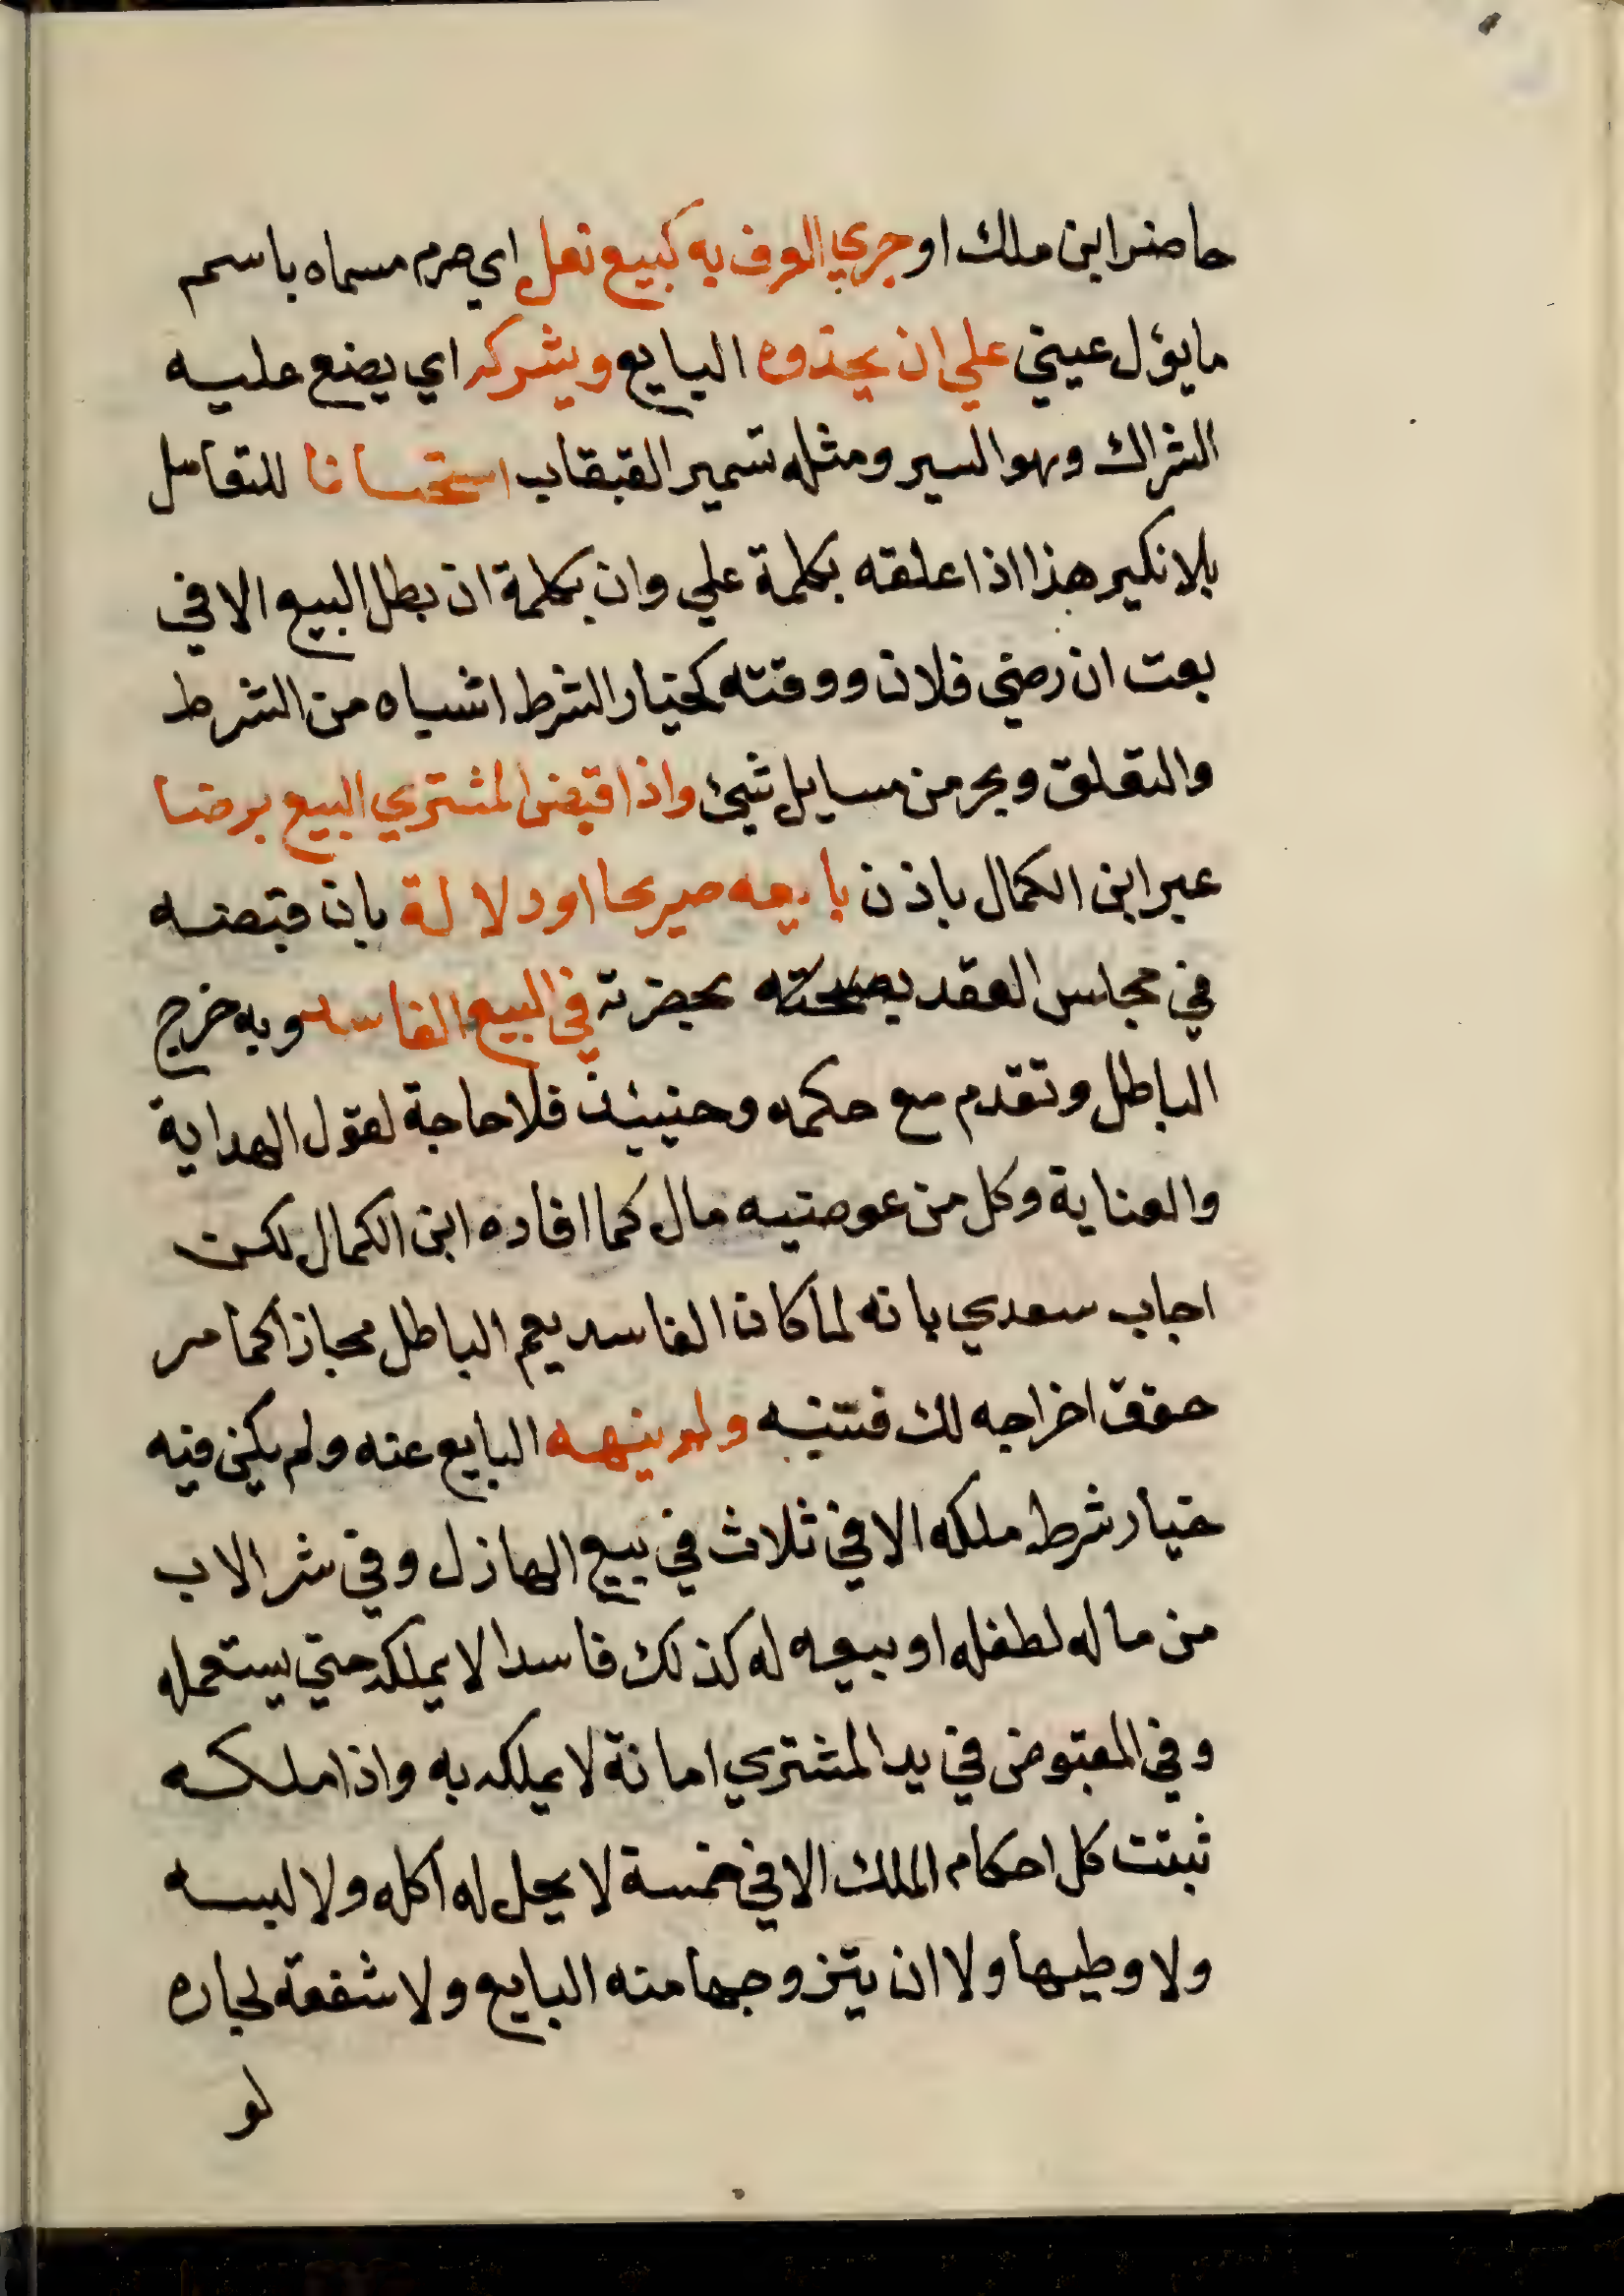 حاضر ابن ملك او جري العرف به كبيع نعل اي صرم مسماه باسم
ما يؤل عيني علي ان يحذوه البايع ويشركه اي يضع عليه
الشراك وهو السير ومثله تسمير القبقاب استحسانا للتعامل
بلا نكير هذا اذا علقه بكلمة علي وان بكلمة ان بطل البيع الا في
بعت ان رضي فلان ووقته كخيار الشرط اشباه من الشرط
والتعلق وبحر من مسايل شيئ واذا قبض المشتري البيع برضا
عبر ابن الكمال باذن بايعه صريحا او دلالة بان قبضه
في مجلس العقد بحضرته في البيع الفاسد وبه خرج
الباطل وتقدم مع حكمه وحنيئذ فلا حاجة لقول الهداية
والعناية وكل من عوضيه مال كما افاده ابن الكمال لكن
اجاب سعدي بانه لما كان الفاسد يعم الباطل مجازا كما مر
حقق اخراجه لك فتنبه ولم ينهه البايع عنه ولم يكن فيه
خيار شرط ملكه الا في ثلاث في بيع الهازل وفي شر الاب
من ماله لطفله او بيعه له كذلك فاسدا لا يملكه حتي يستعمله
وفي المقبوض في يد المشتري امانة لا يملكه به واذا ملكه
ثبتت كل احكام الملك الا في خمسة لا يحل له اكله ولا لبسه
ولا وطيها ولا ان يتزوجها منه البايع ولا شفعة لجاره
لو